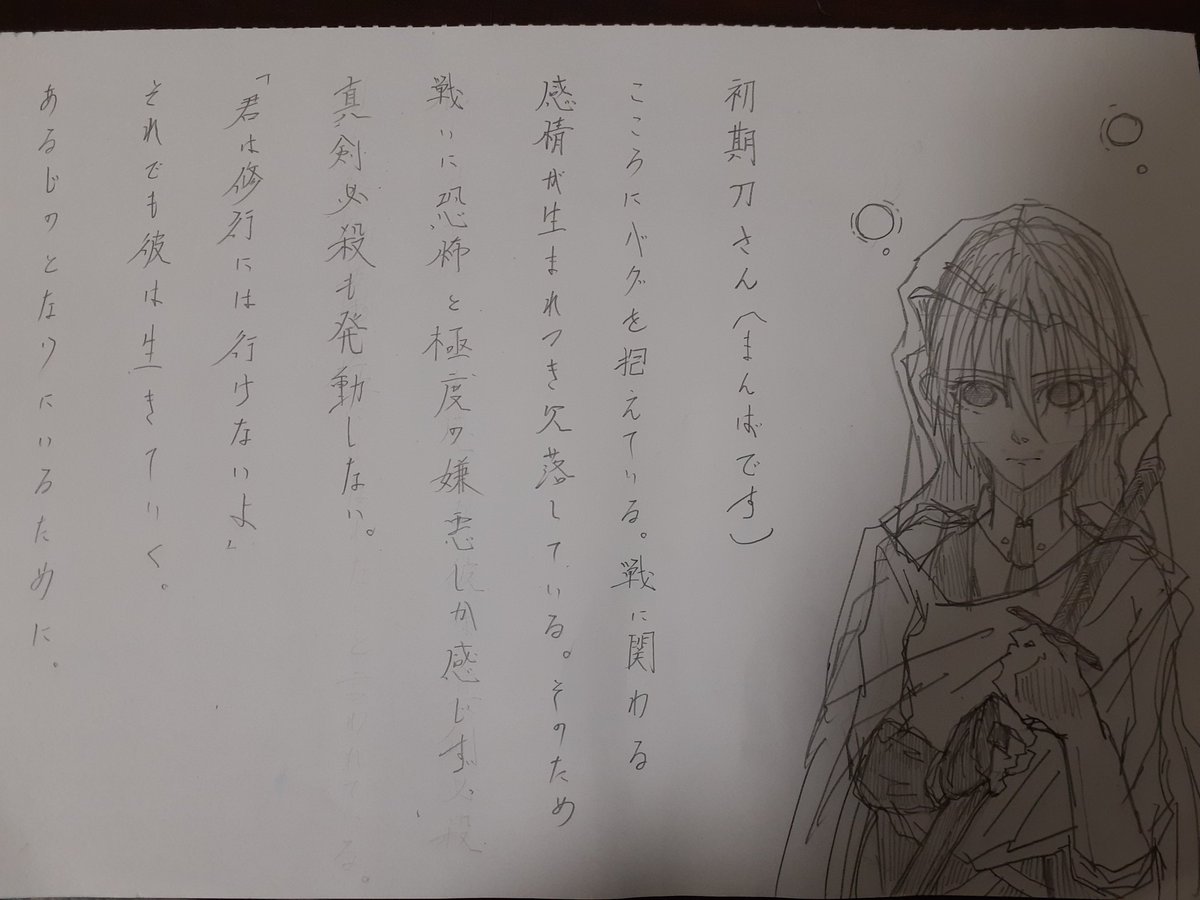 初期刀さん(まんばです)
こころにバグを抱えている。戦に関わる
感情が生まれつき欠落している。そのため
戦いに恐怖と極度の嫌悪しか感じず、
真剣必殺も発動しない。
「君は修行には行けないよ」
それでも彼は生きていく。
あるじのとなりにいるために。